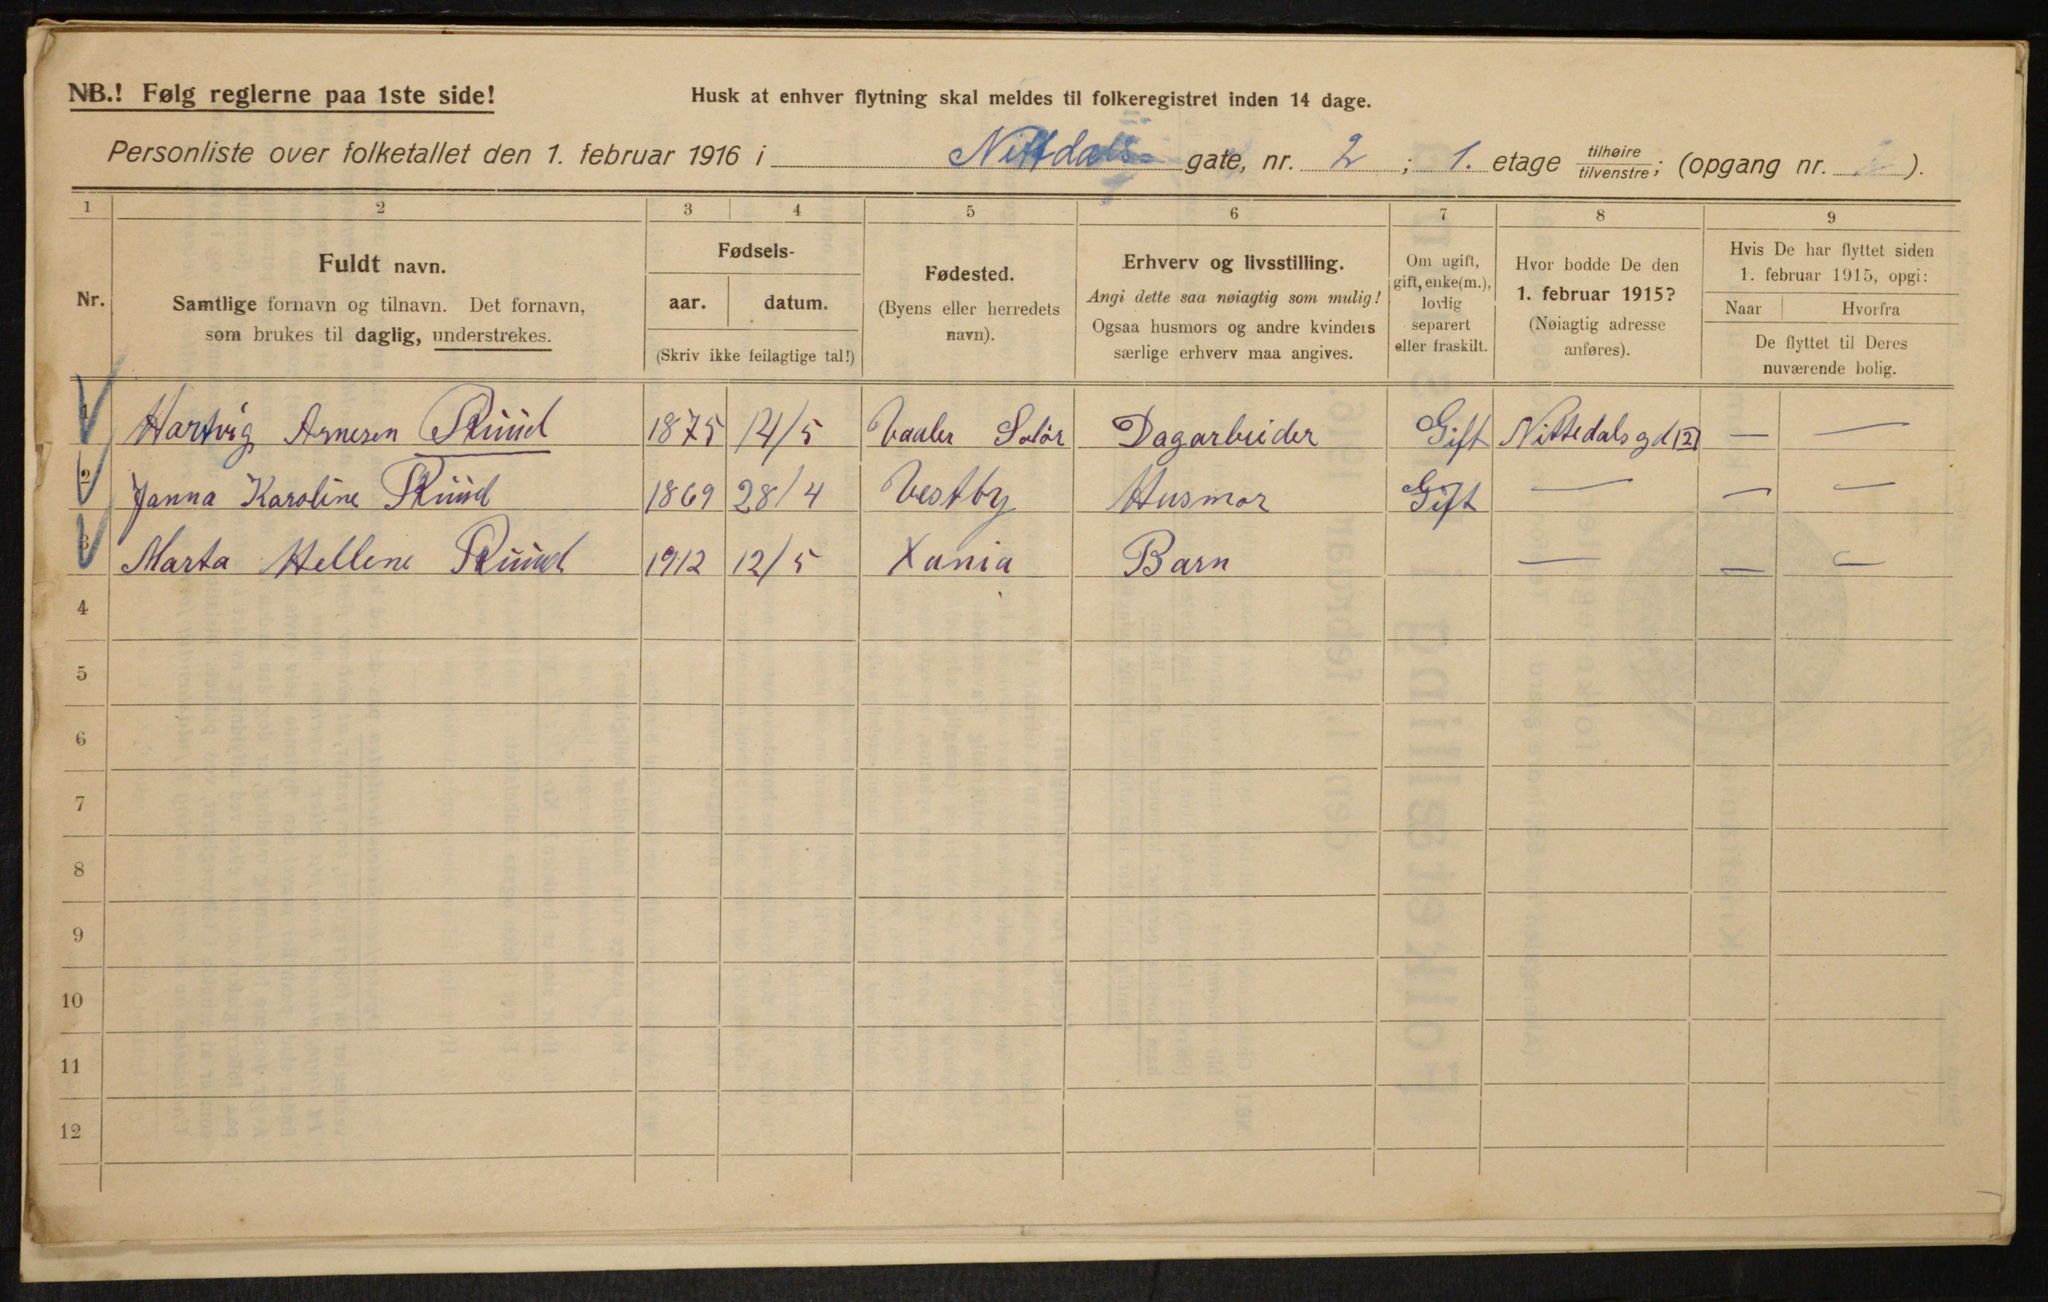 NB.! Følg reglerne paa 1ste side!
Husk at enhver flytning skal meldes til folkeregistret inden 14 dage.
Personliste over folketallet den 1. februar 1916 i Nittdals- gate, nr. 2 ; 1. etage tilhøire tilvenstre; (opgang nr. ).
1 2 3 4 5 6 7 8 9
Nr.
Fuldt navn.
Samtlige fornavn og tilnavn. Det fornavn,
som brukes til daglig, understrekes.
Fødsels-
aar. datum.
(Skriv ikke feilagtige tal!)
Fødested.
(Byens eller herredets
navn).
Erhverv og livsstilling.
Angi dette saa nøiagtig som mulig!
Ogsaa husmors og andre kvinders
særlige erhverv maa angives.
Om ugift,
gift, enke(m.),
lovlig
separert
eller fraskilt.
Hvor bodde De den
1. februar 1915?
(Nøiagtig adresse
anføres).
Hvis De har flyttet siden
1. februar 1915, opgi:
Naar Hvorfra
De flyttet til Deres
nuværende bolig.
1 Hartvig Arnesen Ruud 1875 14/5 Vaaler Solør Dagarbeider Gift Nittedals gd 2 — —
2 Janna Karoline Ruud 1869 28/4 Vestby Husmor Gift — — —
3 Marta Hellene Ruud 1912 12/5 Xania Barn — — —
4
5
6
7
8
9
10
11
12